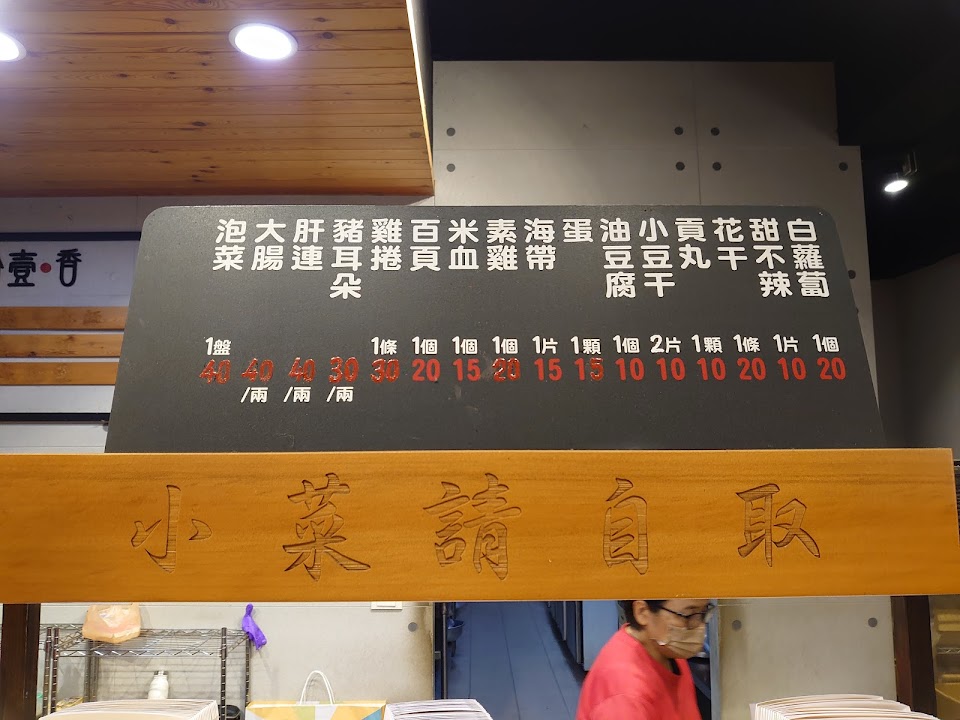 白蘿蔔 1個 20
甜不辣 1片 10
花干 1條 20
貢丸 1顆 10
小豆干 2片 10
油豆腐 1個 10
蛋 1顆 15
海帶 1片 15
素雞 1個 20
米血 1個 15
百頁 1個 20
雞捲 1條 30
豬耳朵 30/兩
肝連 40/兩
大腸 40/兩
泡菜 1盤 40
小菜請自取
壹•香